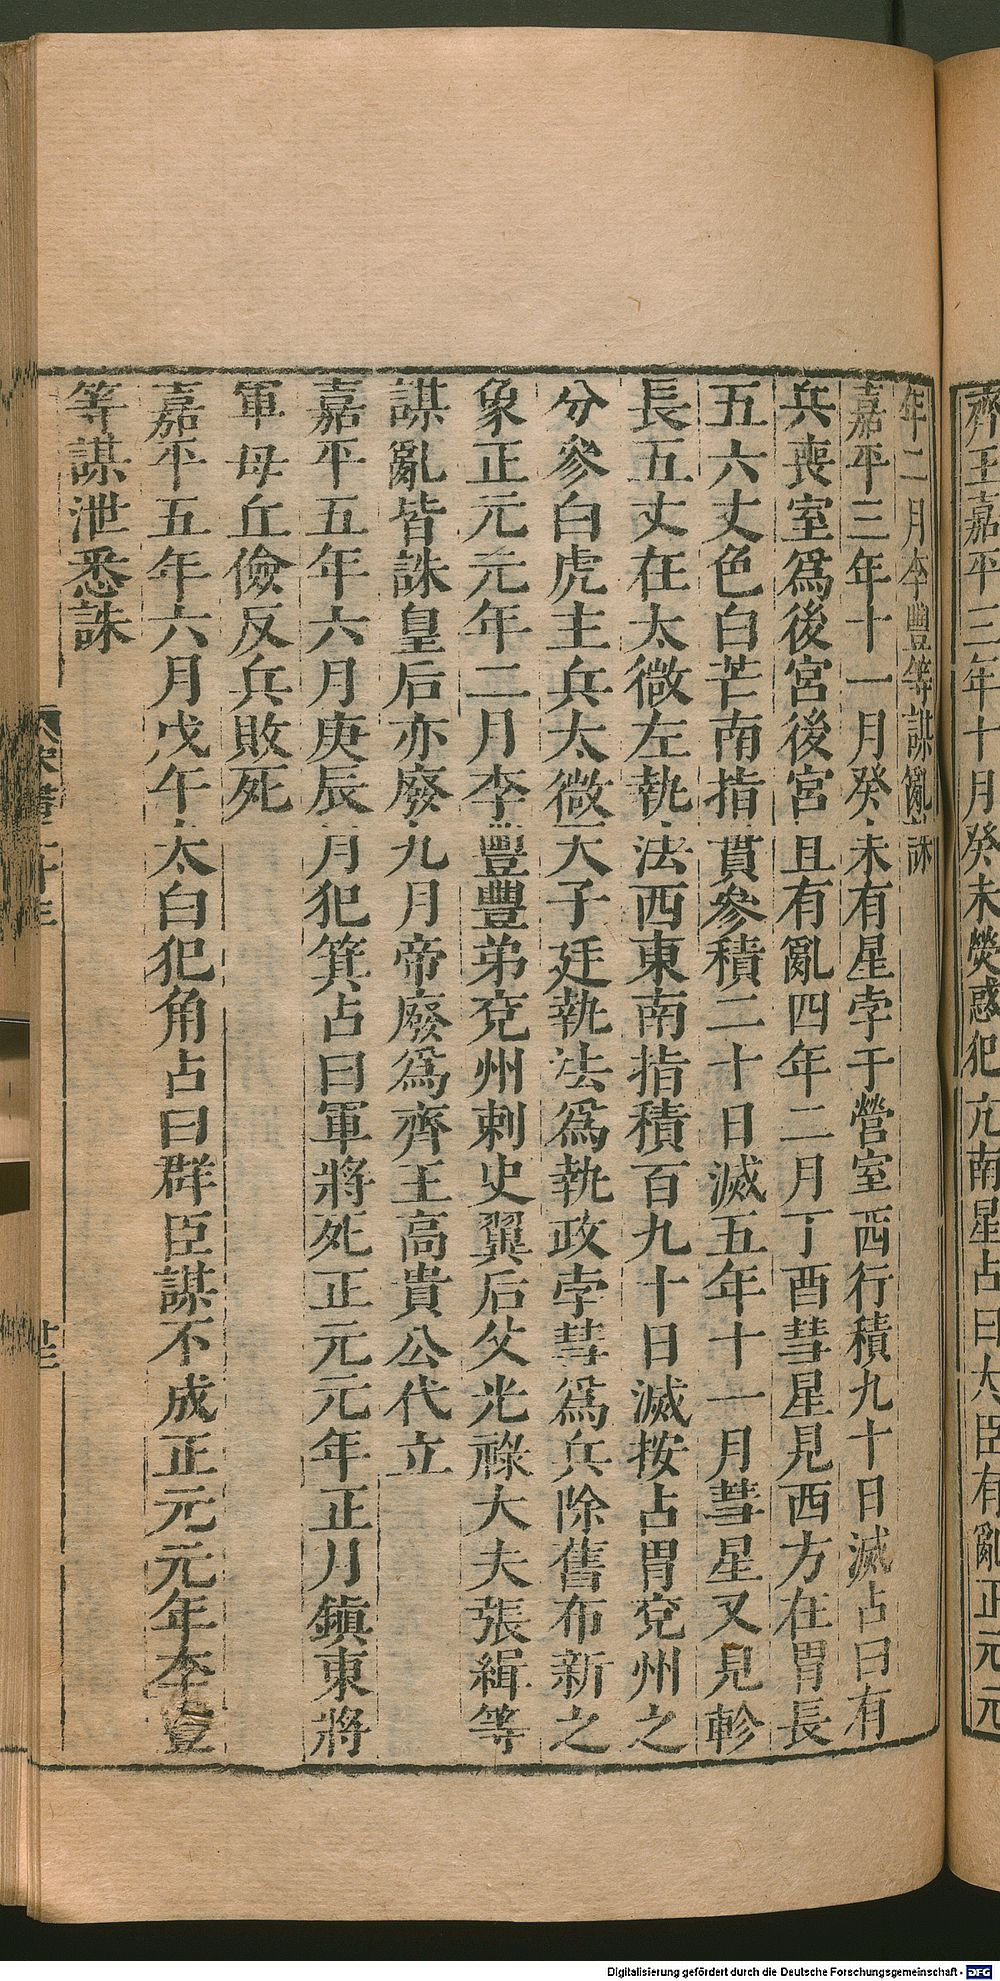 齊王嘉平三年十月癸未熒惑犯亢南星占曰大臣有亂正元元
年二月李豐等謀亂誅
嘉平三年十一月癸未有星孛于營室西行積九十日滅占曰有
兵喪室爲後宮後宮且有亂四年二月丁酉彗星見西方在胃長
五六丈色白芒南指貫參積二十日滅五年十一月彗星又見軫
長五丈在太微左執法西東南指積百九十日滅按占胃兗州之
分參白虎主兵太微天子廷執法爲執政孛彗爲兵除舊布新之
象正元元年二月李豐豐弟兗州刺史翼后父光祿大夫張緝等
謀亂皆誅皇后亦廢九月帝廢爲齊王高貴公代立
嘉平五年六月庚辰月犯箕占曰軍將死正元元年正月鎮東將
軍毋丘儉反兵敗死
嘉平五年六月戊午太白犯角占曰群臣謀不成正元元年李豐
等謀泄悉誅
Digitalisierung gefördert durch die Deutsche Forschungsgemeinschaft - DFG